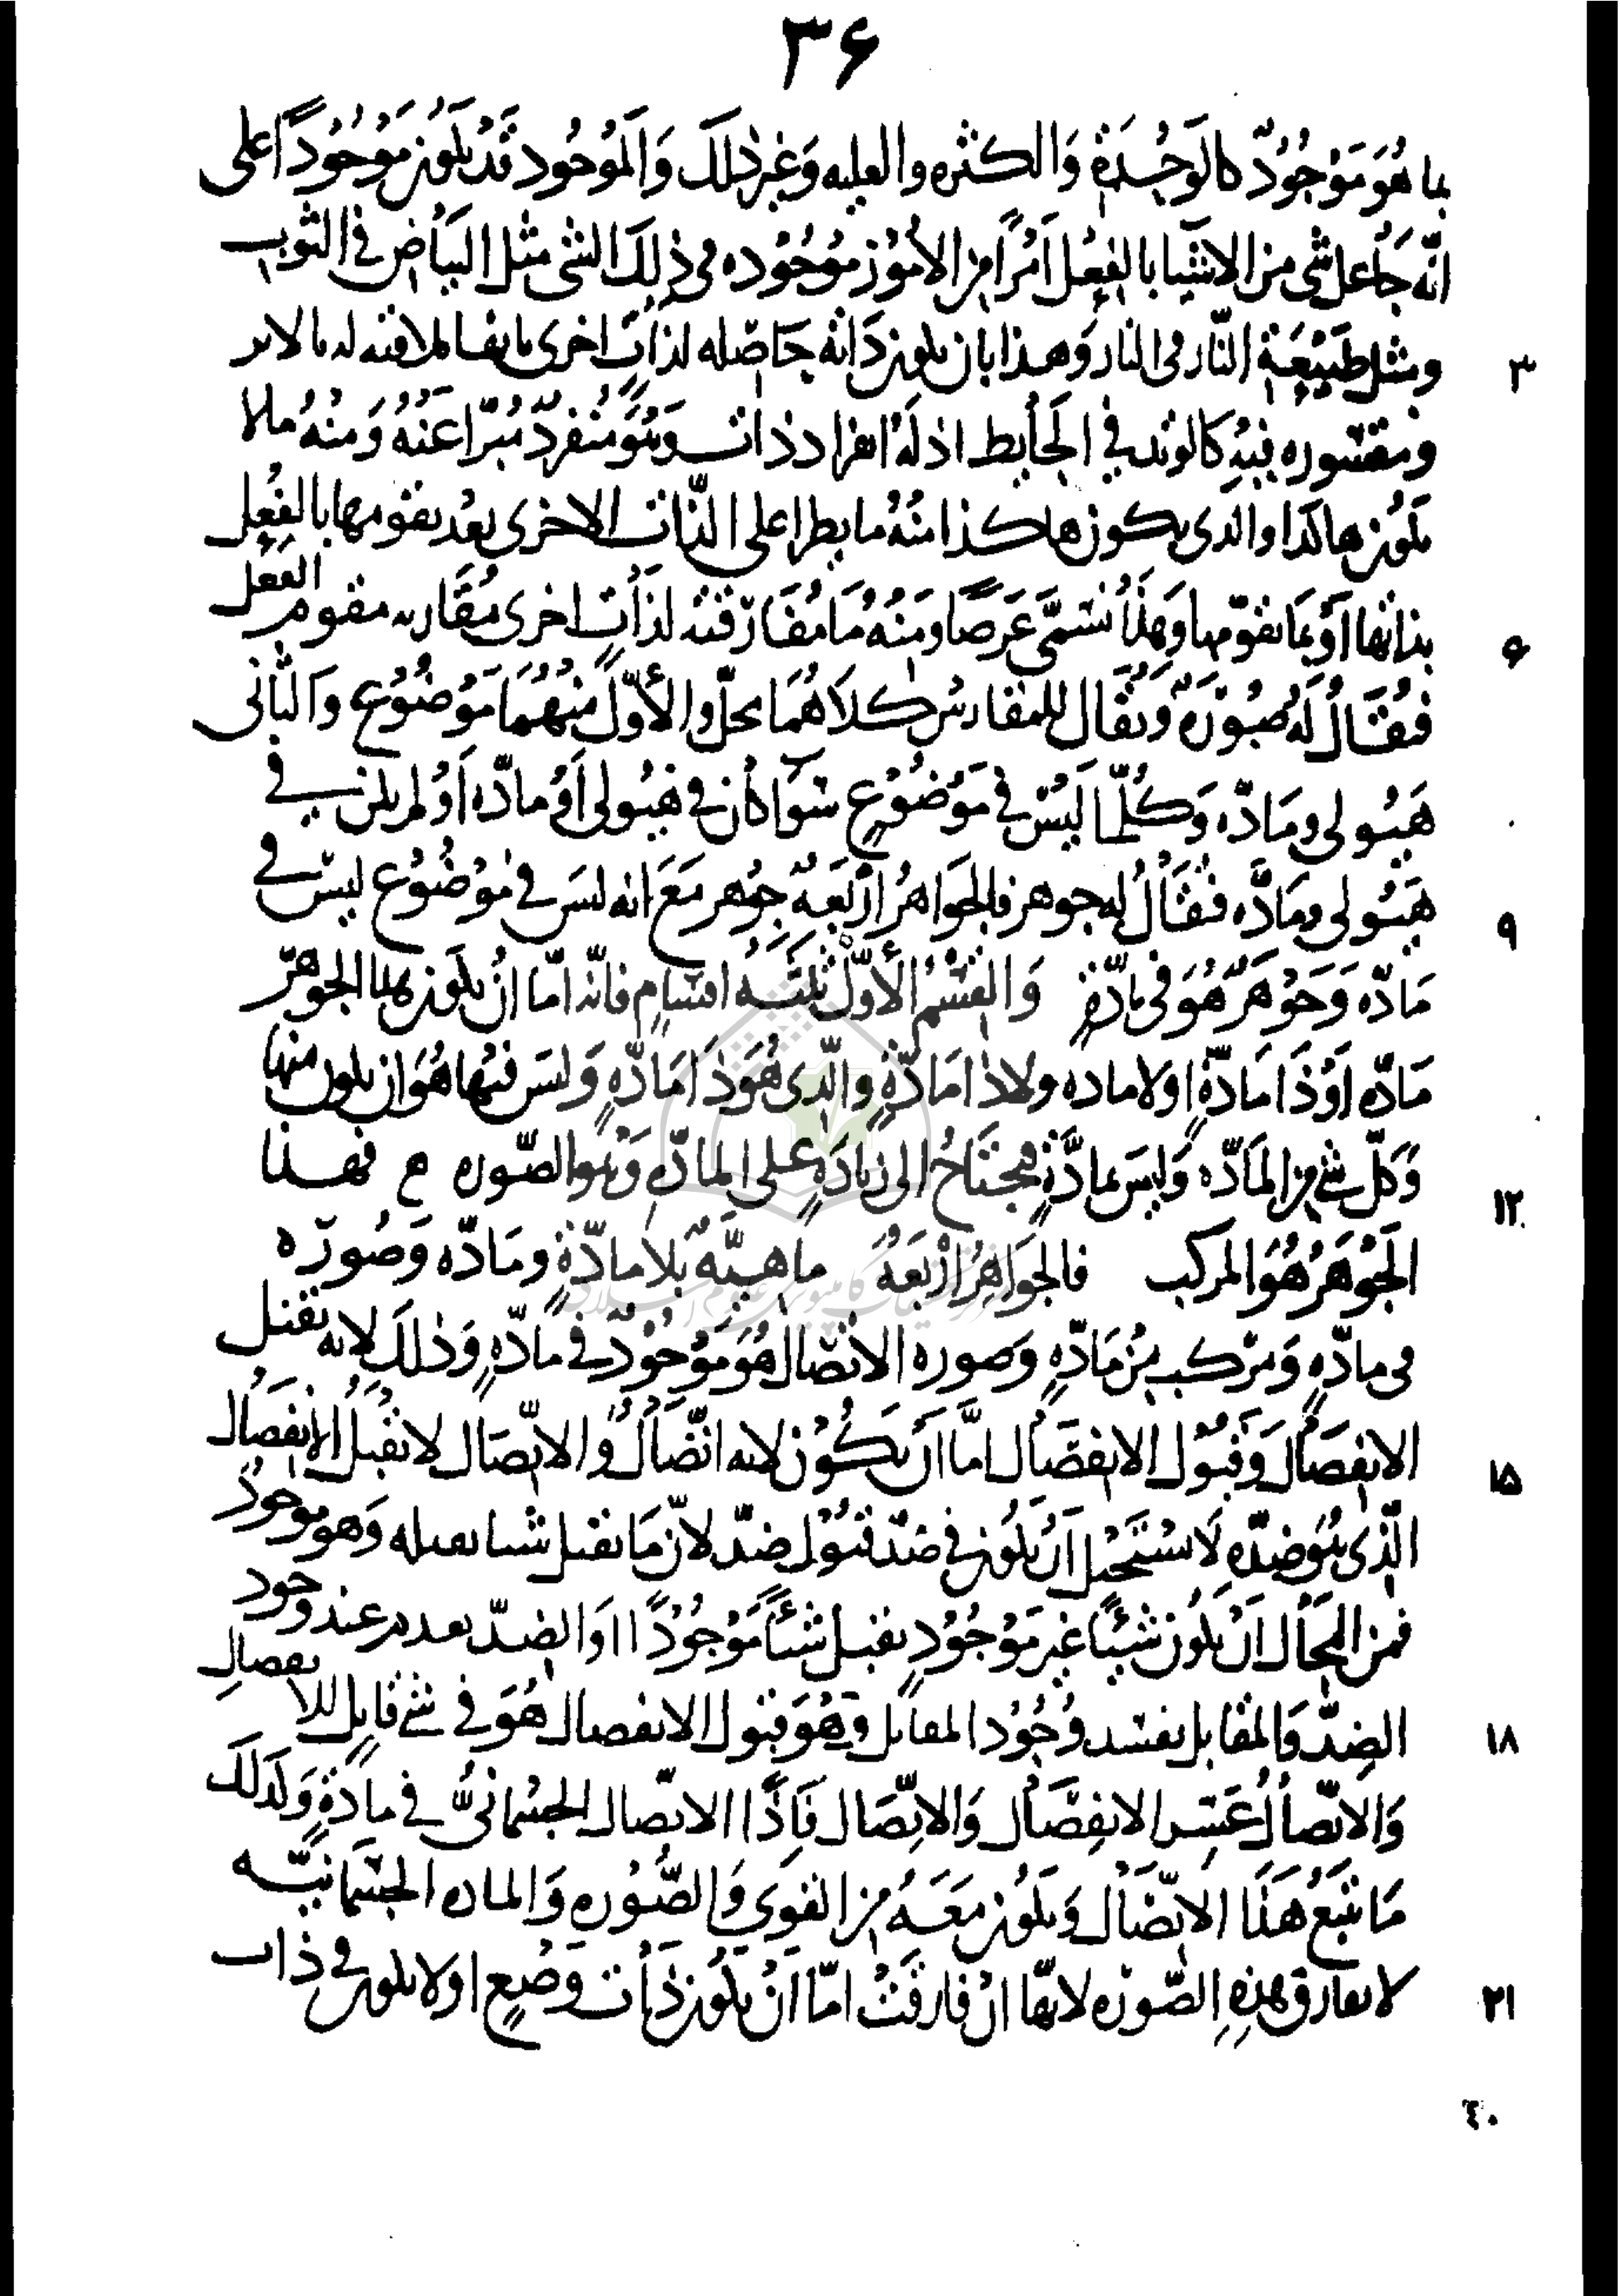 ۳۶
بما هُوَ مَوْجُوُدٌ كالوَحْدَةِ وَالكثره والعليه وَغير ذلكَ وَالمَوُجُود قَدْ يَكُونُ مَوْجُوداً على
انّه جَاعل شى من الاشيا بالفِعْل اَمْراً مِن الأمُوُر مَوُجُوُده فى ذلِكَ الشى مثل البَيَاض فى الثوب
۳ ومثل طَبيْعَةِ النّار فى النار وَهذا بان يكون ذَاته حَاصله لذات اخرى بانها ملاقيه له بالاسر
ومتقرره فيْهِ كالوتد في الحَأيط اذ لَهُ انفراد ذات وَهُوَ مُنْفردٌ مُبّرا عَنْهُ وَمِنْهُ مالا
يَكون هاكذا والذى يكون هاكذا مِنْهُ ما يطرا على الذّات الاخرى بعْد تقومها بالفِعْل
۶ بذاتها اَوْ بما يقوّمها وَهذَا يُسَمَّى عَرضًا ومِنْهُ مَا مُقَارَنته لذَاتٍ اخرى مُقَارنه مقوم الفعل
فيُقَالُ لَهُ صُوْرَةٌ وَيُقَال للمقارنين كلاَهُمَا محلّ والأوّل مِنْهُمَا مَوْضُوْع وَالثّانى
هَيُولى ومَادّه وَكُلّما لَيْسَ في مَوْضُوْعٍ سَوَا كَان في هَيُولى اَوْ مادّه اَوْ لم يكن فى
۹ هَيُولى ومَادَّه فيُقَالُ له جوهر فالجَوَاهرُ ارْبَعَهٌ جَوْهر مَعَ انه ليسَ في مَوْضُوْع ليسَ في
مَادّه وَجَوْهَرٌ هُوَ فى مادّةٍ وَالقسْمُ الأوّلُ ثلثَه اقسَامٍ فانّه امّا اَنْ يكون هذا الجوهرُ
مَادّه اَوْ ذَا مَادّةٍ اولا ماده ولا ذا مَادّةٍ والّذى هُوَ ذَا مَادّهٍ وَليسَ فيها هُوَ ان يكون منها
۱۲ وَكلّ شئ من المَادّه وَليسَ بمادّةٍ محتَاجُ الى زيادَهٍ على المادّه وَهُوَ الصّوره م فهذا
الجَوْهَرُ هُوَ المركب فالجوَاهِرُ ارْبَعَةُ ماهيّةٌ بلا مادّةٍ ومَادّه وَصُورَه
فى مادّهٍ وَمرَكب مِنْ مَادّهٍ وَصوره الاتصّال هُوَ مَوْجُوْدٌ في مَادّهٍ وَذلكَ لانه تقبل
۱۵ الانفصَالَ وَقَبُوْل الانفصَال امّا اَنْ يَكُوْن لانه اتّصَالٌ وَالاتّصَال لا يَقْبَلُ الانفصَال
الّذى هُوَ ضدّه لاَ يسْتَحْيل اَنْ يكُون في ضدّ قَبُوْل ضدّ لانّ مَا يقبل شيا يقبله وَهو موجُود
فمن المحَأل اَنْ يَكُون شيْئاً غير مَوْجُوْدٍ يقبل شيْئاً مَوْجُوْداً وَالضدّ يعدم عند وجود
۱۸ الضِدّ وَالمقابل يفسد وجُوْد المقابل وَهُوَ قبول الانفصال هُوَ في شئ قابل للانفصال
وَالاتّصَالُ غير الانفِصَال وَالاتّصَال فَاِذاً الاتّصال الجسْمانىُّ في مادّةٍ وَكذلك
مَا يتبَعُ هَذا الاتّصَال وَيَكون مَعَهُ مِن القوى وَالصّوُره وَالماده الجسْمَانيّه
۲۱ لا تفارق هذِهِ الصّوْرَه لانّها انْ فارقَتْ امّا اَنْ يَكون ذَاتَ وَضْعٍ اولا يكون فى ذات
٤٠